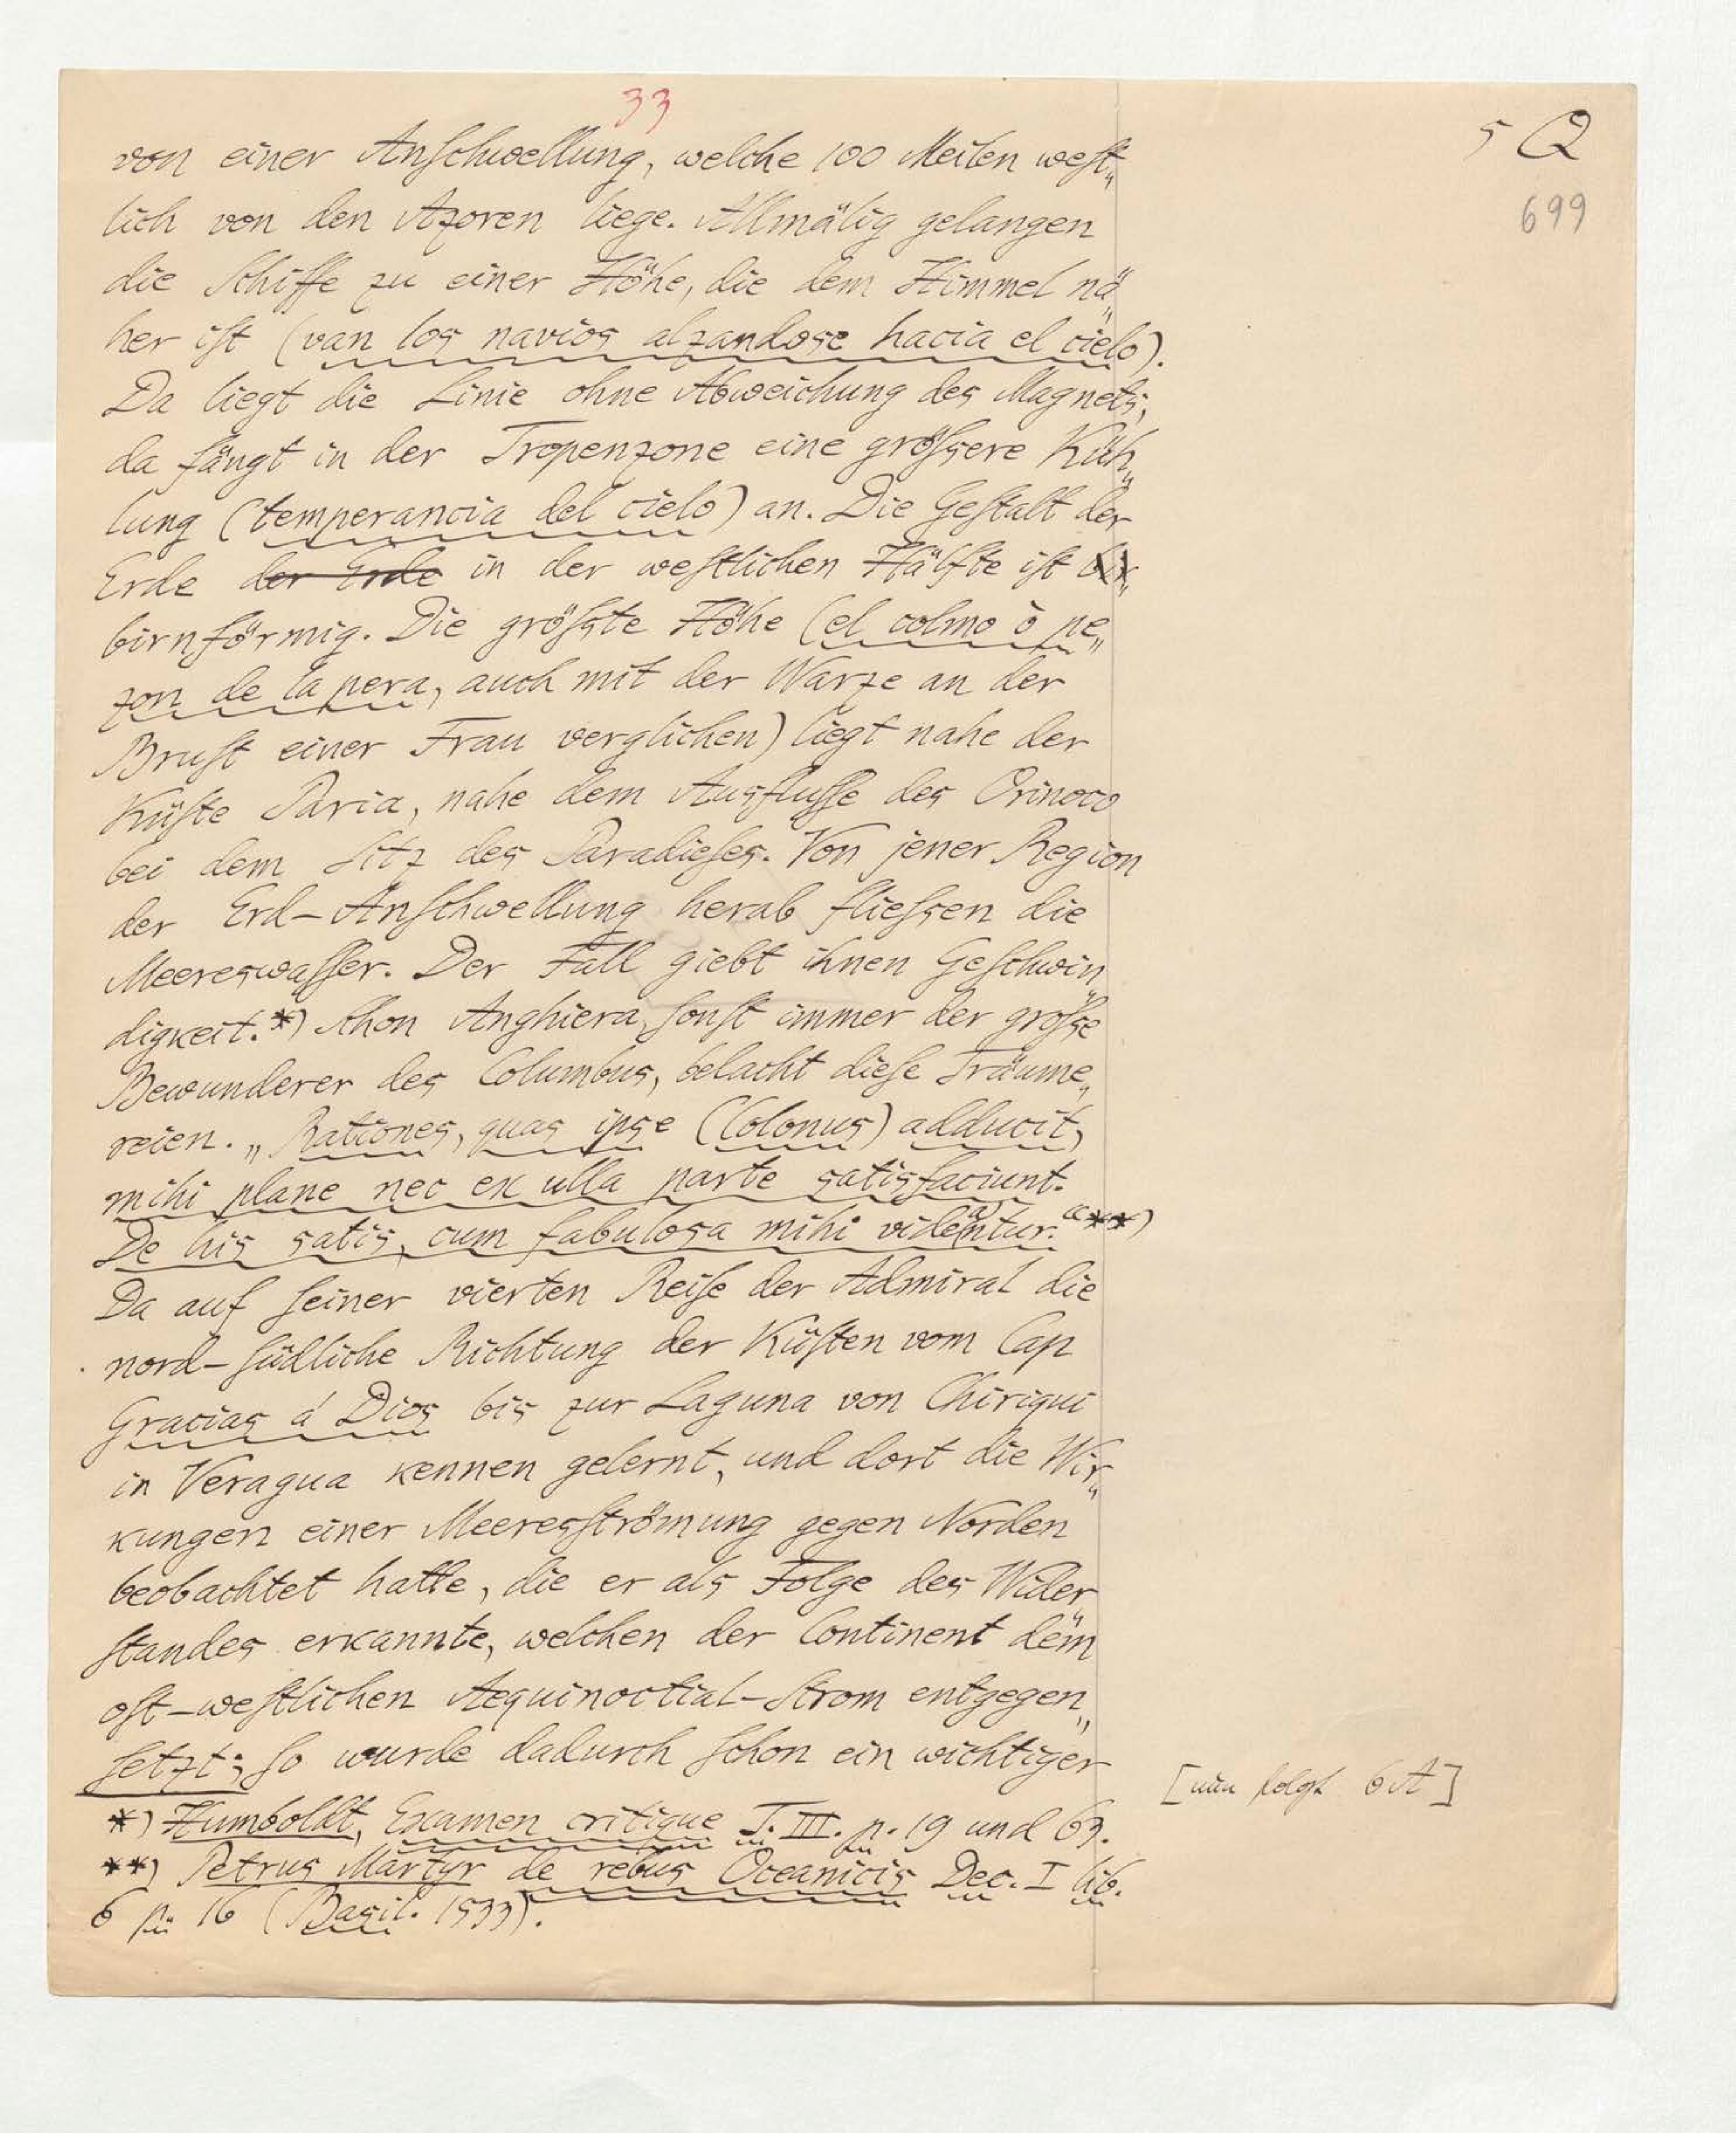 33
5 Q
699
von einer Anschwellung, welche 100 Meilen west„
lich von den Azoren liege. Allmälig gelangen
die Schiffe zu einer Höhe, die dem Himmel nä„
her ist (van los navios alzandose hacia el cielo).
Da liegt die Linie ohne Abweichung des Magnets;
da fängt in der Tropenzone eine grössere Küh„
lung (temperancia del cielo) an. Die Gestalt der
Erde der Erde in der westlichen Hälfte ist bir„
birnförmig. Die grösste Höhe (el colmo ò pe„
zon de la pera, auch mit der Warze an der
Brust einer Frau verglichen) liegt nahe der
Küste Paria, nahe dem Ausflusse des Orinoco
bei dem Sitz des Paradieses. Von jener Region
der Erd-Anschwellung herab fliessen die
Meereswasser. Der Fall giebt ihnen Geschwin„
digkeit.*) Schon Anghiera, sonst immer der grosse
Bewunderer des Columbus, belacht diese Träume„
reien. „Rationes, quas ipse (Colonus) adducit,
mihi plane nec ex ulla parte satisfaciunt.
De his satis, cum fabulosa mihi vide(a)ntur.“**)
Da auf seiner vierten Reise der Admiral die
nord-südliche Richtung der Küsten vom Cap
Gracias á Dios bis zur Laguna von Chiriqui
in Veragua kennen gelernt, und dort die Wir„
kungen einer Meeresströmung gegen Norden
beobachtet hatte, die er als Folge des Wider„
standes erkannte, welchen der Continent dem
ost-westlichen Aequinoctial-Strom entgegen„
setzt; so wurde dadurch schon ein wichtiger
[nun folgt 6 A]
*) Humboldt, Examen critique T. III. p. 19 und 63.
**) Petrus Martyr de rebus Oceanicis Dec. I lib.
6 p. 16 (Basil. 1533).